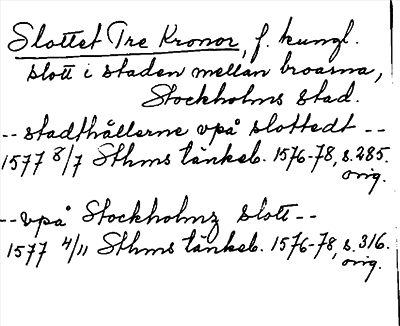 Slottet Tre Kronor, f. kungl.
slott i staden mellan broarna,
Stockholms stad.
-- stadthållerne vpå slottedt --
1577 8/7 Sthms tänkeb. 1576-78, s. 285.
orig.
-- vpå Stockholmz slott --
1577 4/11 Sthms tänkeb. 1576-78, s. 316.
orig.